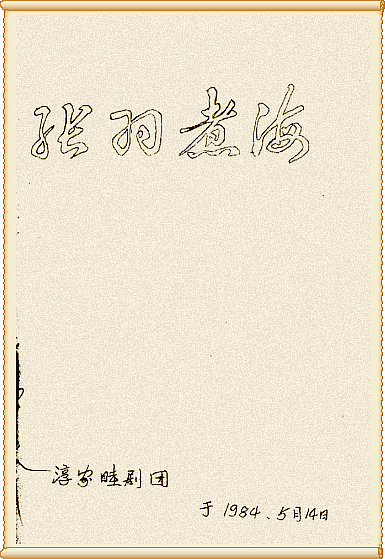 张羽煮海
淳安睦剧团
于1984.5月14日